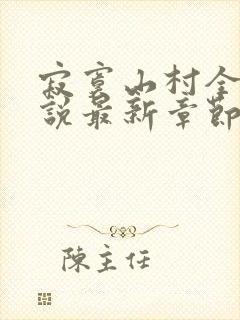 寂寞山村全
說最新章節
陳主任